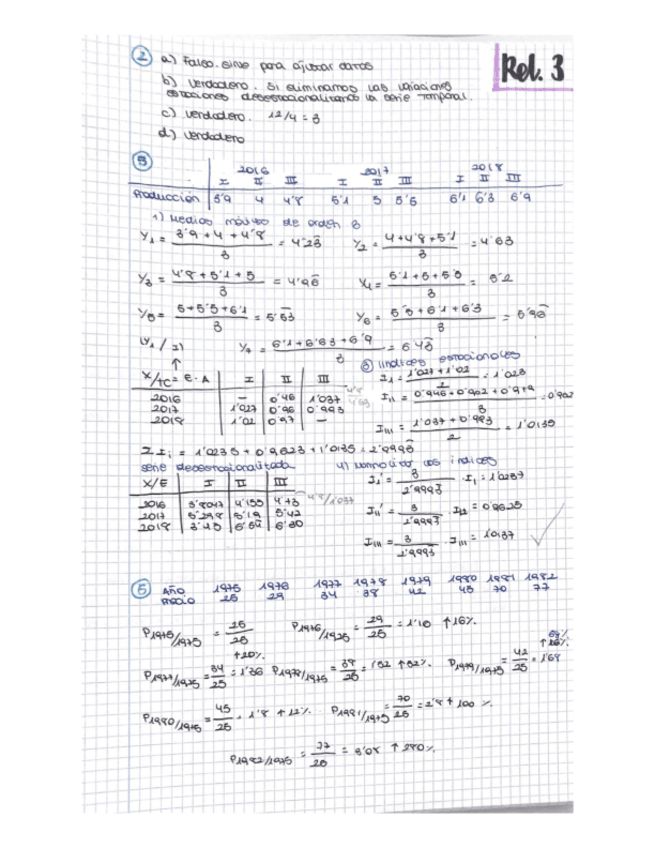 Rel. 3
2 a) Falso. sirve para ajustar datos
b) verdadero. si eliminamos las variaciones
estaciones desestacionalizando la serie temporal.
c) verdadero. 12/4 = 3
d) verdadero
3
2016 2017 2018
I II III I II III I II III
Producción 3'9 4 4'8 5'1 5 5'5 6'1 6'3 6'9
1) Medias móviles de orden 3
Y1 = 3'9 + 4 + 4'8 / 3 = 4'23 Y2 = 4 + 4'8 + 5'1 / 3 = 4'63
Y3 = 4'8 + 5'1 + 5 / 3 = 4'96 Y4 = 5'1 + 5 + 5'5 / 3 = 5'2
Y5 = 5 + 5'5 + 6'1 / 3 = 5'53 Y6 = 5'5 + 6'1 + 6'3 / 3 = 5'96
Y7 = 6'1 + 6'3 + 6'9 / 3 = 6'43
3) Indices estacionales
X/TC = E · A I II III
2016 — 0'946 1'037
2017 1'027 0'96 0'993
2018 1'02 0'97 —
I1 = 1'027 + 1'02 / 2 = 1'023
III = 0'946 + 0'962 + 0'979 / 3 = 0'962
IIII = 1'037 + 0'993 / 2 = 1'0135
Σ Ii = 1'0235 + 0'9623 + 1'0135 = 2'9993
serie desestacionalizada 4) Normalizar los indices
X/E I II III
2016 3'8047 4'155 4'73 4'8/1'037
2017 5'298 5'19 5'42
2018 6'54 6'80
I1' = 3 / 2'9993 · I1 = 1'0237
III' = 3 / 2'9993 · III = 0'9625
IIII = 3 / 2'9993 · IIII = 1'0137
5 Año 1975 1976 1977 1978 1979 1980 1981 1982
Precio 25 29 34 38 42 45 70 77
P1975/1975 = 25/25 P1976/1975 = 29/25 = 1'16 ↑16%
P1977/1975 = 34/25 = 1'36 P1978/1975 = 38/25 = 1'52 ↑52% P1979/1975 = 42/25 = 1'68
P1980/1975 = 45/25 = 1'8 P1981/1975 = 70/25 = 2'8
P1982/1975 = 77/25 = 3'08